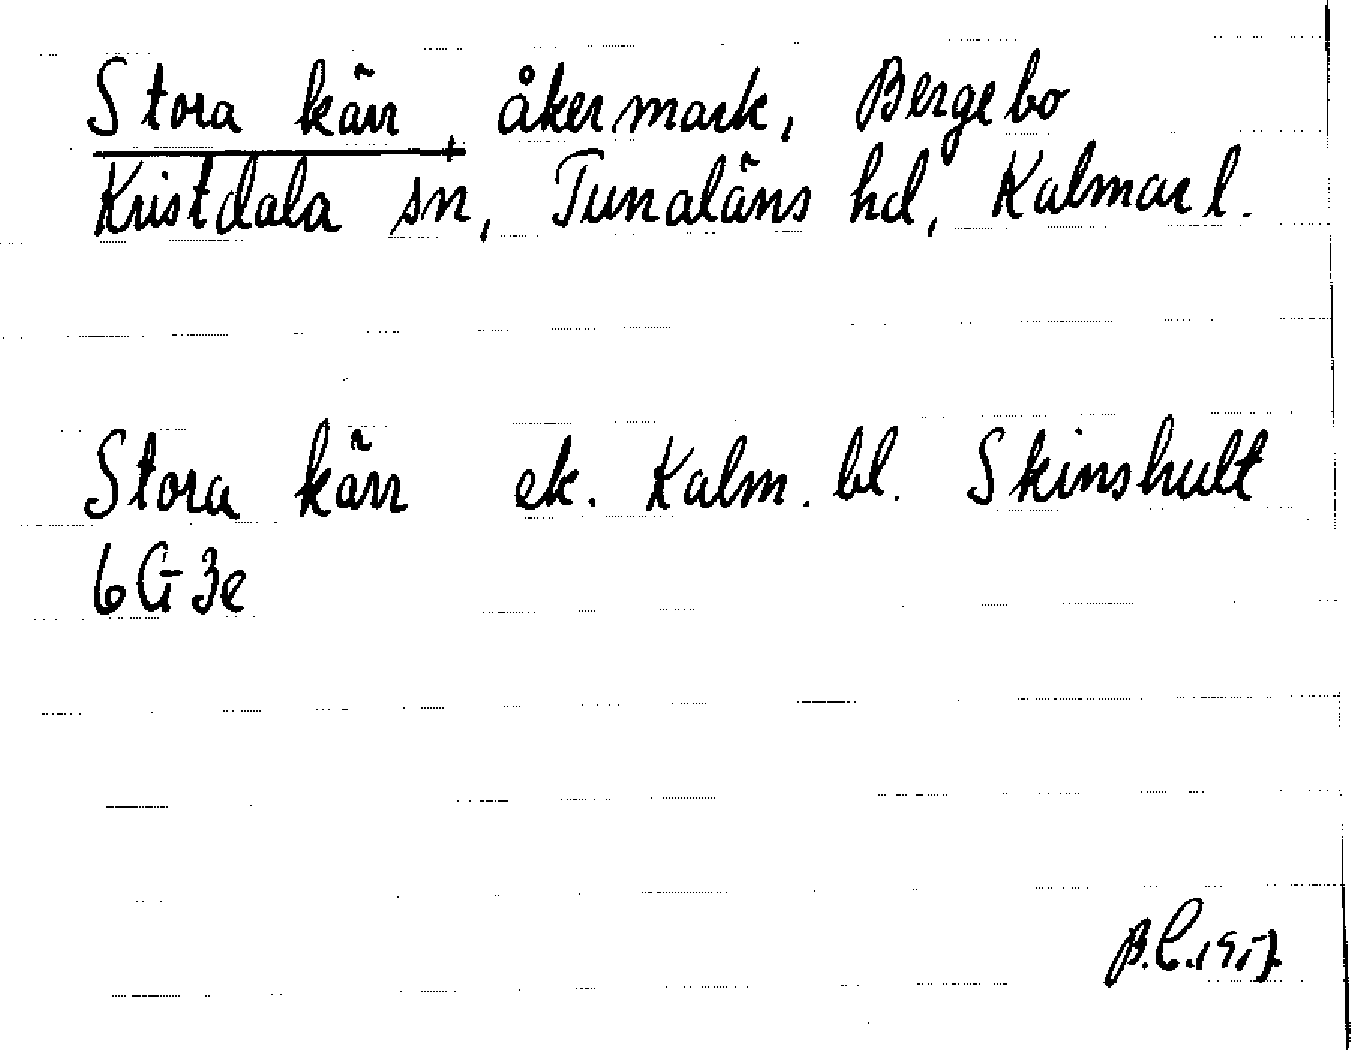 Stora kärr + åkermark, Bergebo
Kristdala sn, Tunaläns hd, Kalmar l.
Stora kärr ek. Kalm. bl. Skinshult
6G3e
B.C. 1957